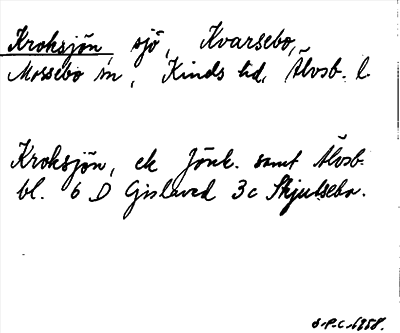 Kroksjön, sjö, Kvarsebo,
Mossebo sn, Kinds hd, Älvsb. l.
Kroksjön, ek Jönk. samt Älvsb.
bl. 6 D Gislaved 3c Skjutsebo.
S.P.C. 1958.